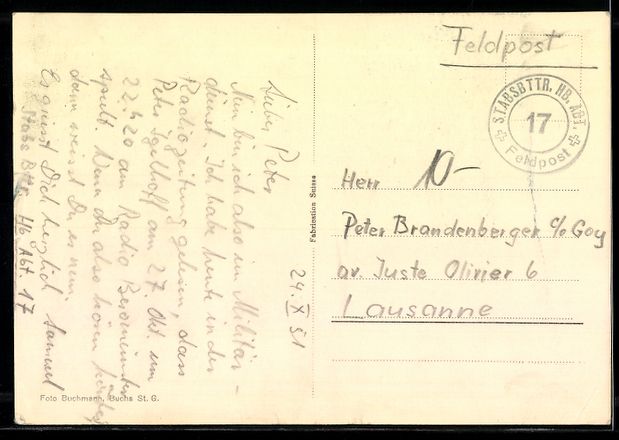 Feldpost
STABSBTTR. HB. ABT.
17
Feldpost
10-
Herr
Peter Brandenberger c/o Goy
av. Juste Olivier 6
Lausanne
24. X 51
Lieber Peter
Nun bin ich also im Militär-
dienst. Ich habe heute in der
Radiozeitung gelesen, dass
Peter Igelhoff am 27. Okt. um
22.20 am Radio Beromünster
spielt. Wenn Du also hören
dann weisst Du es nun
Es grüsst Dich herzlich Samuel
Stabs Bttr Hb Abt. 17
Fabrication Suisse
Foto Buchmann, Buchs St. G.